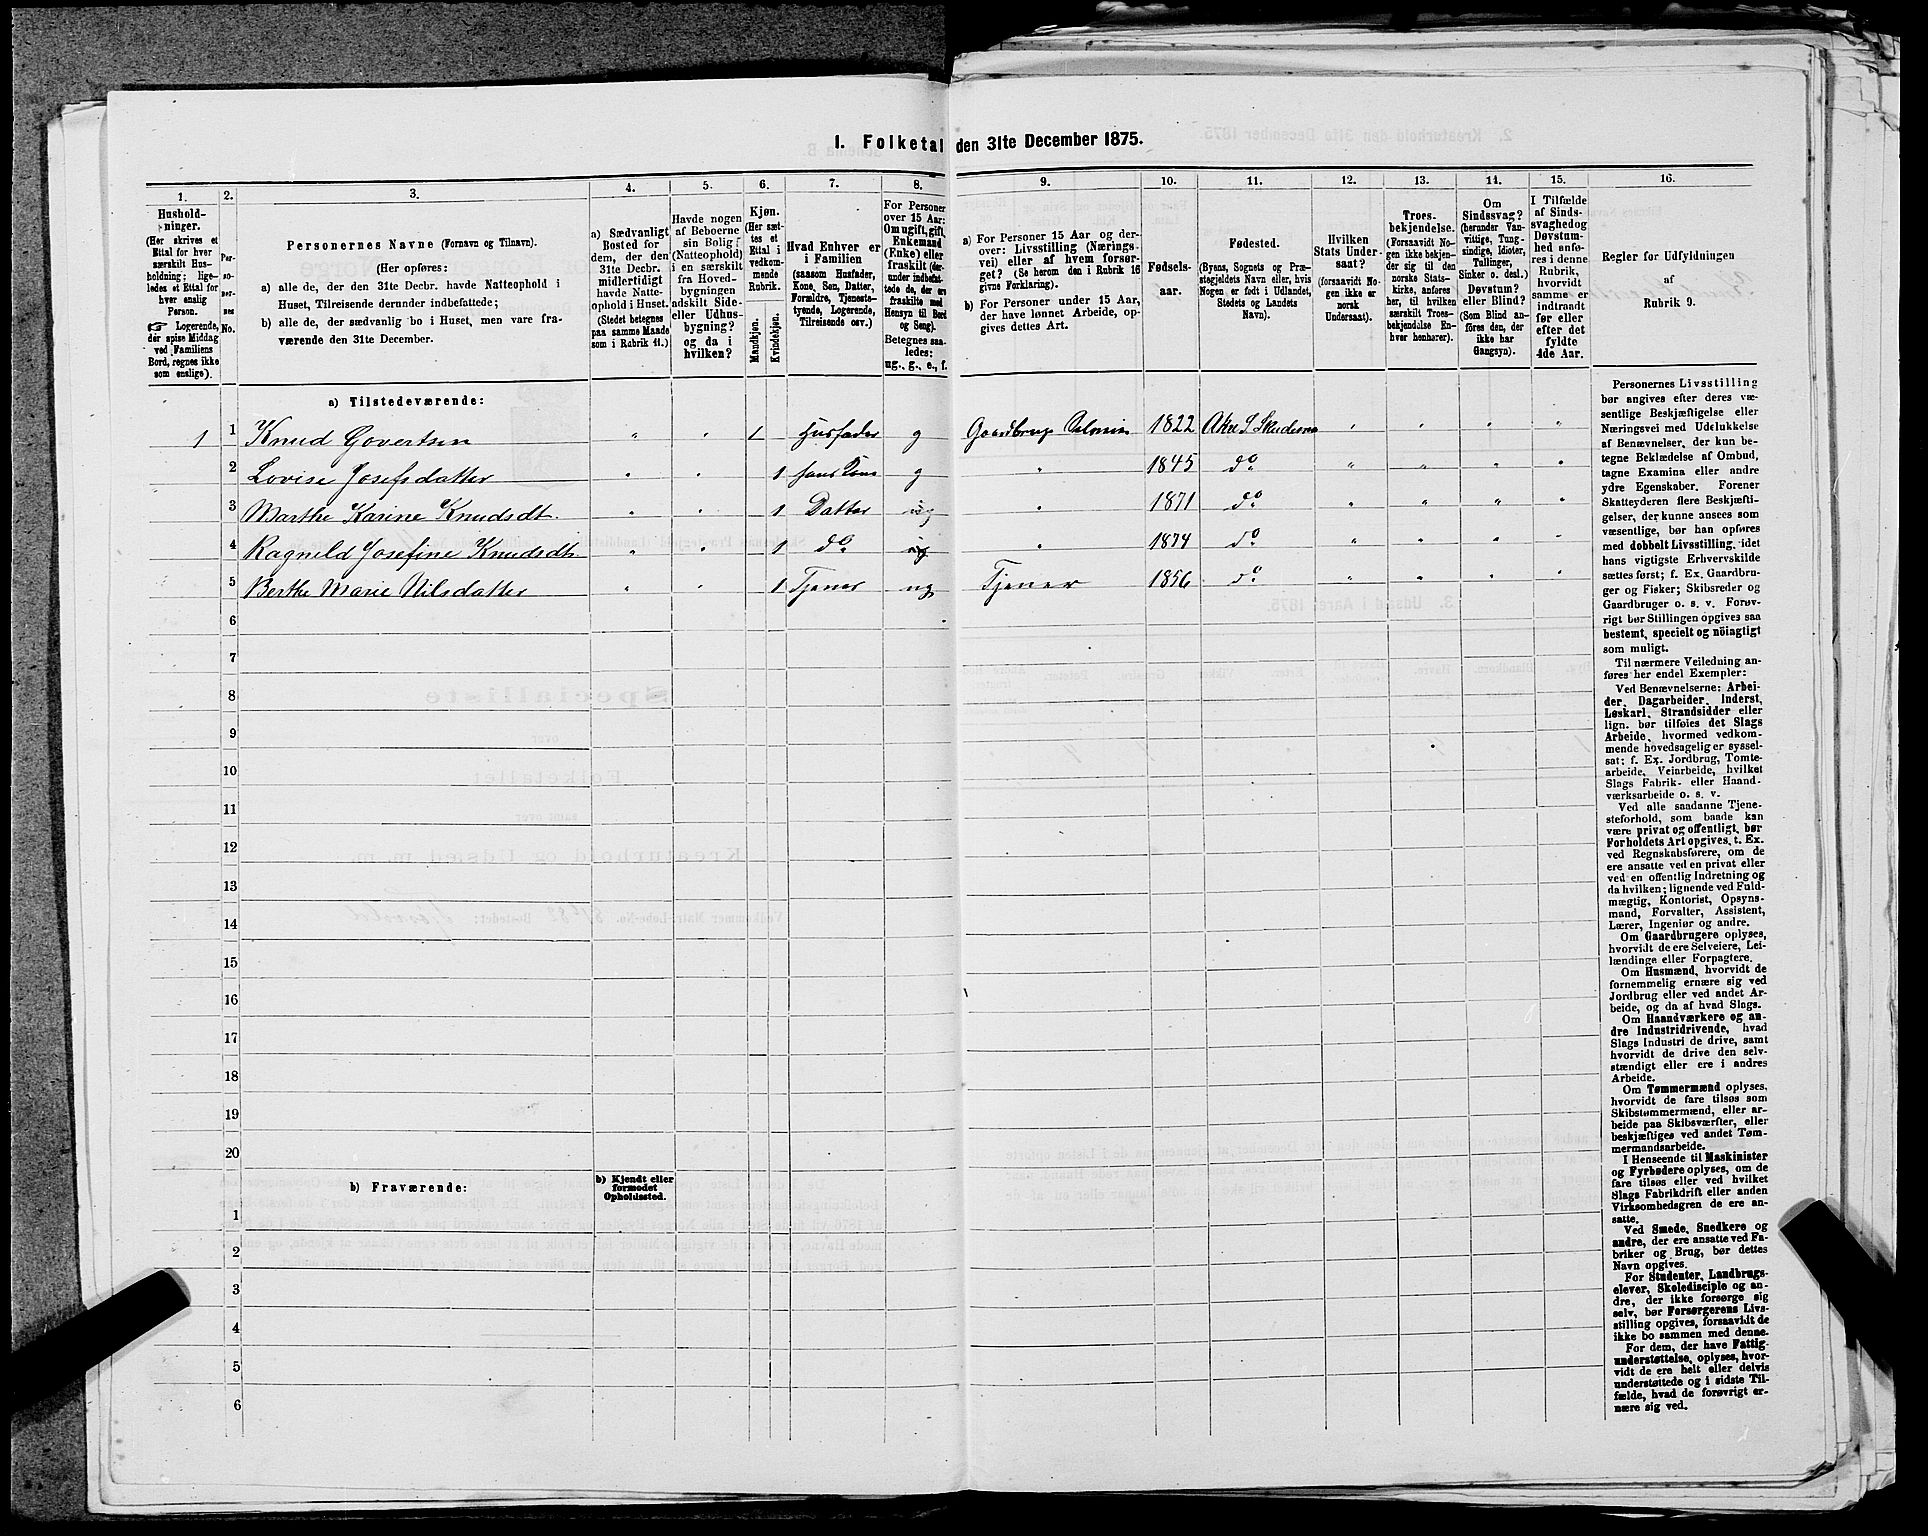 I. Folketal den 31te December 1875.
1.
Hushold-
ninger.
(Her skrives et
Ettal for hver
særskilt Hus-
holdning; lige-
ledes et Ettal for
hver enslig
Person.
☞ Logerende,
der spise Middag
ved Familiens
Bord, regnes ikke
som enslige).
2.
Per-
so-
ner-
nes
No.
3.
Personernes Navne (Fornavn og Tilnavn).
(Her opføres:
a) alle de, der den 31te Decbr. havde Natteophold i
Huset, Tilreisende derunder indbefattede;
b) alle de, der sædvanlig bo i Huset, men vare fra-
værende den 31te December.
4.
a) Sædvanligt
Bosted for
dem, der den
31te Decbr.
midlertidigt
havde Natte-
ophold i Huset.
(Stedet betegnes
paa samme Maade
som i Rubrik 11.)
5.
Havde nogen
af Beboerne
sin Bolig
(Natteophold)
i en særskilt
fra Hoved-
bygningen
adskilt Side-
eller Udhus-
bygning?
og da i
hvilken?
6.
Kjøn.
(Her sæt-
tes et
Ettal i
vedkom-
mende
Rubrik.
Mandkjøn.
Kvindekjøn.
7.
Hvad Enhver er
i Familien
(saasom Husfader,
Kone, Søn, Datter,
Forældre, Tjeneste-
tyende, Logerende,
Tilreisende osv.)
8.
For Personer
over 15 Aar:
Om ugift, gift,
Enkemand
(Enke) eller
fraskilt (der-
under indbefat-
tede de, der ere
fraskilte med
Hensyn til Bord
og Seng).
Betegnes saa-
ledes:
ug., g., e., f.
9.
a) For Personer 15 Aar og der-
over: Livsstilling (Nærings-
vei) eller af hvem forsør-
get? (Se herom den i Rubrik 16
givne Forklaring).
b) For Personer under 15 Aar,
der have lønnet Arbeide, op-
gives dettes Art.
10.
Fødsels-
aar.
11.
Fødested.
(Byens, Sognets og Præ-
stegjeldets Navn eller, hvis
Nogen er født i Udlandet,
Stedets og Landets
Navn).
12.
Hvilken
Stats Under-
saat?
(forsaavidt No-
gen ikke er
norsk
Undersaat).
13.
Troes-
bekjendelse.
(Forsaavidt No-
gen ikke bekjen-
der sig til den
norske Stats-
kirke, anføres
her, til hvilken
særskilt Troes-
bekjendelse En-
hver henhører).
14.
Om
Sindssvag?
(herunder Van-
vittige, Tung-
sindige, Idioter,
Tullinger,
Sinker o. desl.)
Døvstum?
eller Blind?
(Som Blind an-
føres den, der
ikke har
Gangsyn).
15.
I Tilfælde
af Sinds-
svaghedog
Døvstum-
hed anfø-
res i denne
Rubrik,
hvorvidt
samme er
indtraadt
før eller
efter det
fyldte
4de Aar.
16.
Regler for Udfyldningen
af
Rubrik 9.
a) Tilstedeværende:
1 1 Knud Govertsen " " 1 Husfader g Gaardbruger 1822 " " " "
2 Lovise Josefsdatter " " 1 hans Kone g " 1845 do " " " "
3 Marthe Karine Knudsdt. " " 1 Datter ug " 1871 do " " " "
4 Ragnild Josefine Knudsdt " " 1 do ug " 1874 do " " " "
5 Berthe Marie Nilsdatter " " 1 Tjener ug Tjener 1856 do " " " "
6
7
8
9
10
11
12
13
14
15
16
17
18
19
20
b) Fraværende:
b) Kjendt eller
formodet
Opholdssted.
1
2
3
4
5
6
Personernes Livsstilling
bør angives efter deres væ-
sentlige Beskjæftigelse eller
Næringsvei med Udelukkelse
af Benævnelser, der kun be-
tegne Beklædelse af Ombud,
tagne Examina eller andre
ydre Egenskaber. Forener
Skatteyderen flere Beskjæfti-
gelser, der kunne ansees som
væsentlige, bør han opføres
med dobbelt Livsstilling, idet
hans vigtigste Erhvervskilde
sættes først; f. Ex. Gaardbru-
ger og Fisker; Skibsreder og
Gaardbruger o. s. v. Forøv-
rigt bør Stillingen opgives saa
bestemt, specielt og nöiagtigt
som muligt.
Til nærmere Veiledning an-
føres her endel Exempler:
Ved Benævnelserne: Arbei-
der, Dagarbeider, Inderst,
Løskarl, Strandsidder eller
lign. bør tilføies det Slags
Arbeide, hvormed vedkom-
mende hovedsagelig er syssel-
sat; f. Ex. Jordbrug, Tomte-
arbeide, Veiarbeide, hvilket
Slags Fabrik- eller Haand-
værksarbeide o. s. v.
Ved alle saadanne Tjene-
steforhold, som baade kan
være privat og offentligt, bør
Forholdets Art opgives, t. Ex.
ved Regnskabsførere, om de
ere ansatte ved en privat eller
ved en offentlig Indretning og
da hvilken; lignende ved Fuld-
mægtig, Kontorist, Opsyns-
mand, Forvalter, Assistent,
Lærer, Ingeniør og andre.
Om Gaardbrugere oplyses,
hvorvidt de ere Selveiere, Lei-
lændinge eller Forpagtere.
Om Husmænd, hvorvidt de
fornemmelig ernære sig ved
Jordbrug eller ved andet Ar-
beide, og da af hvad Slags.
Om Haandværkere og an-
dre Industridrivende, hvad
Slags Industri de drive, samt
hvorvidt de drive den selv-
stændigt eller ere i andres
Arbeide.
Om Tømmermænd oplyses,
hvorvidt de fare tilsøs som
Skibstømmermænd, eller ar-
beide paa Skibsværfter, eller
beskjæftiges ved andet Tøm-
mermandsarbeide.
I Henseende til Maskinister
og Fyrbødere oplyses, om de
fare tilsøs eller ved hvilket
Slags Fabrikdrift eller anden
Virksomhedsgren de ere an-
satte.
Ved Smede, Snedkere og
andre, der ere ansatte ved Fa-
briker og Brug, bør dettes
Navn opgives.
For Studenter, Landbrugs-
elever, Skoledisciple og an-
dre, der ikke forsørge sig
selv, bør Forsørgerens Livs-
stilling opgives, forsaavidt de
ikke bo sammen med denne.
For dem, der have Fattig-
understøttelse, oplyses, hvor-
vidt de ere helt eller delvis
understøttede og i sidste Til-
fælde, hvad de forøvrigt er-
nære sig ved.